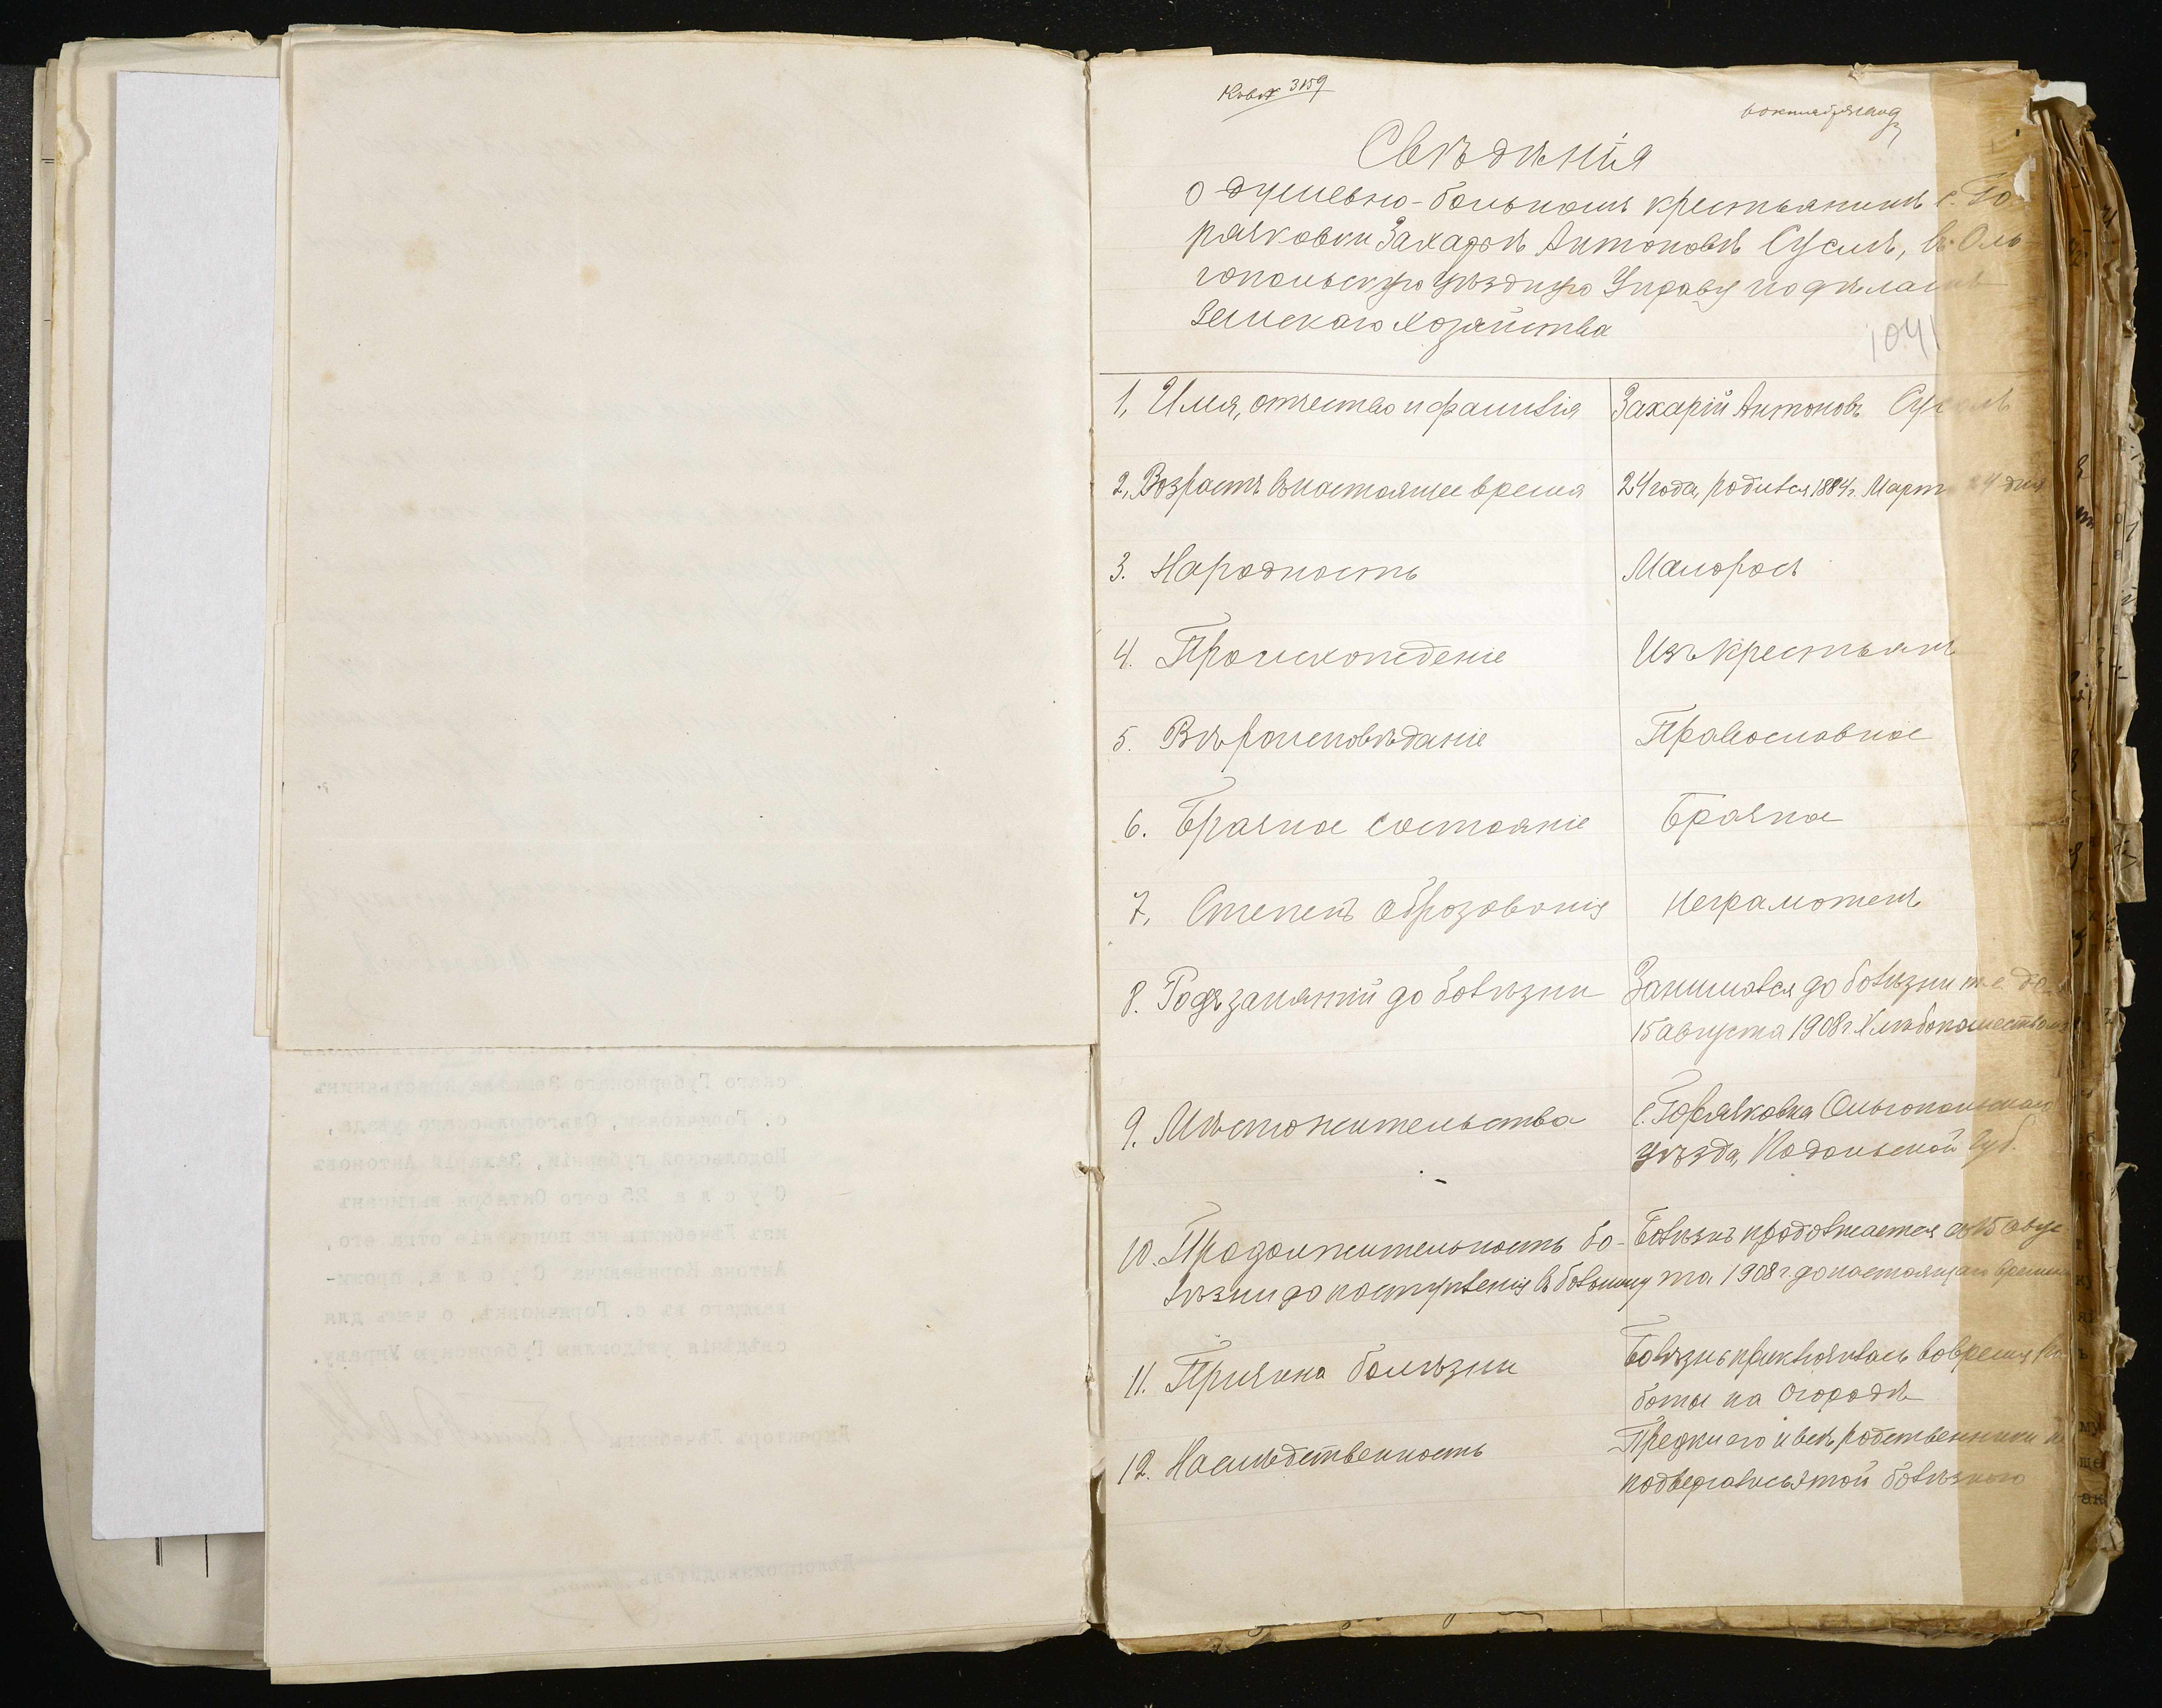 3159
Свѣдѣнія
о душевно-больномъ крестьянинѣ с. Го-
рячковки Захаріѣ Антоновѣ Суслѣ, въ Оль-
гопольскую Уѣздную Управу по дѣламъ
Земскаго Хозяйства
1041
1, Имя, отчество и фамилія Захарій Антоновъ
2, Возрастъ въ настоящее время 24 года, родился 1884 г. Марта 24 дня
3. Народность Малоросъ
4. Происхожденіе Изъ крестьянъ
5. Вѣроисповѣданіе Православное
6. Брачное состояніе Брачное
7, Степень образованія Неграмотенъ
8. Родъ занятій до болѣзни Занимался до болѣзни т.е. до
15 августа 1908 г. Хлѣбопашествомъ
9. Мѣстожительства с. Горячковка Ольгопольскаго
уѣзда, Подольской губ.
10. Продолжительность бо- Болѣзнь продолжается съ 15 авгус
лѣзни до поступленія въ больницу та 1908 г. до настоящаго времени
11. Причина болѣзни Болѣзнь приключилась во время ра
боты на огородѣ
12. Наслѣдственность Предки его и всѣ родственники не
подвергались этой болѣзнью
скаго Губернскаго Земства крестьянинъ
с. Горячковки, Ольгопольскаго уѣзда,
Подольской губерніи, Захарій Антоновъ
Сусла 25 сего Октября выписанъ
изъ Лѣчебницы на попеченіе отца его,
Антона Корнѣевича Сусла, прожи-
вающего въ с. Горячковкѣ, о чемъ для
свѣдѣнія увѣдомляю Губернскую Управу.
Директоръ Лѣчебницы
Дѣлопроизводитель